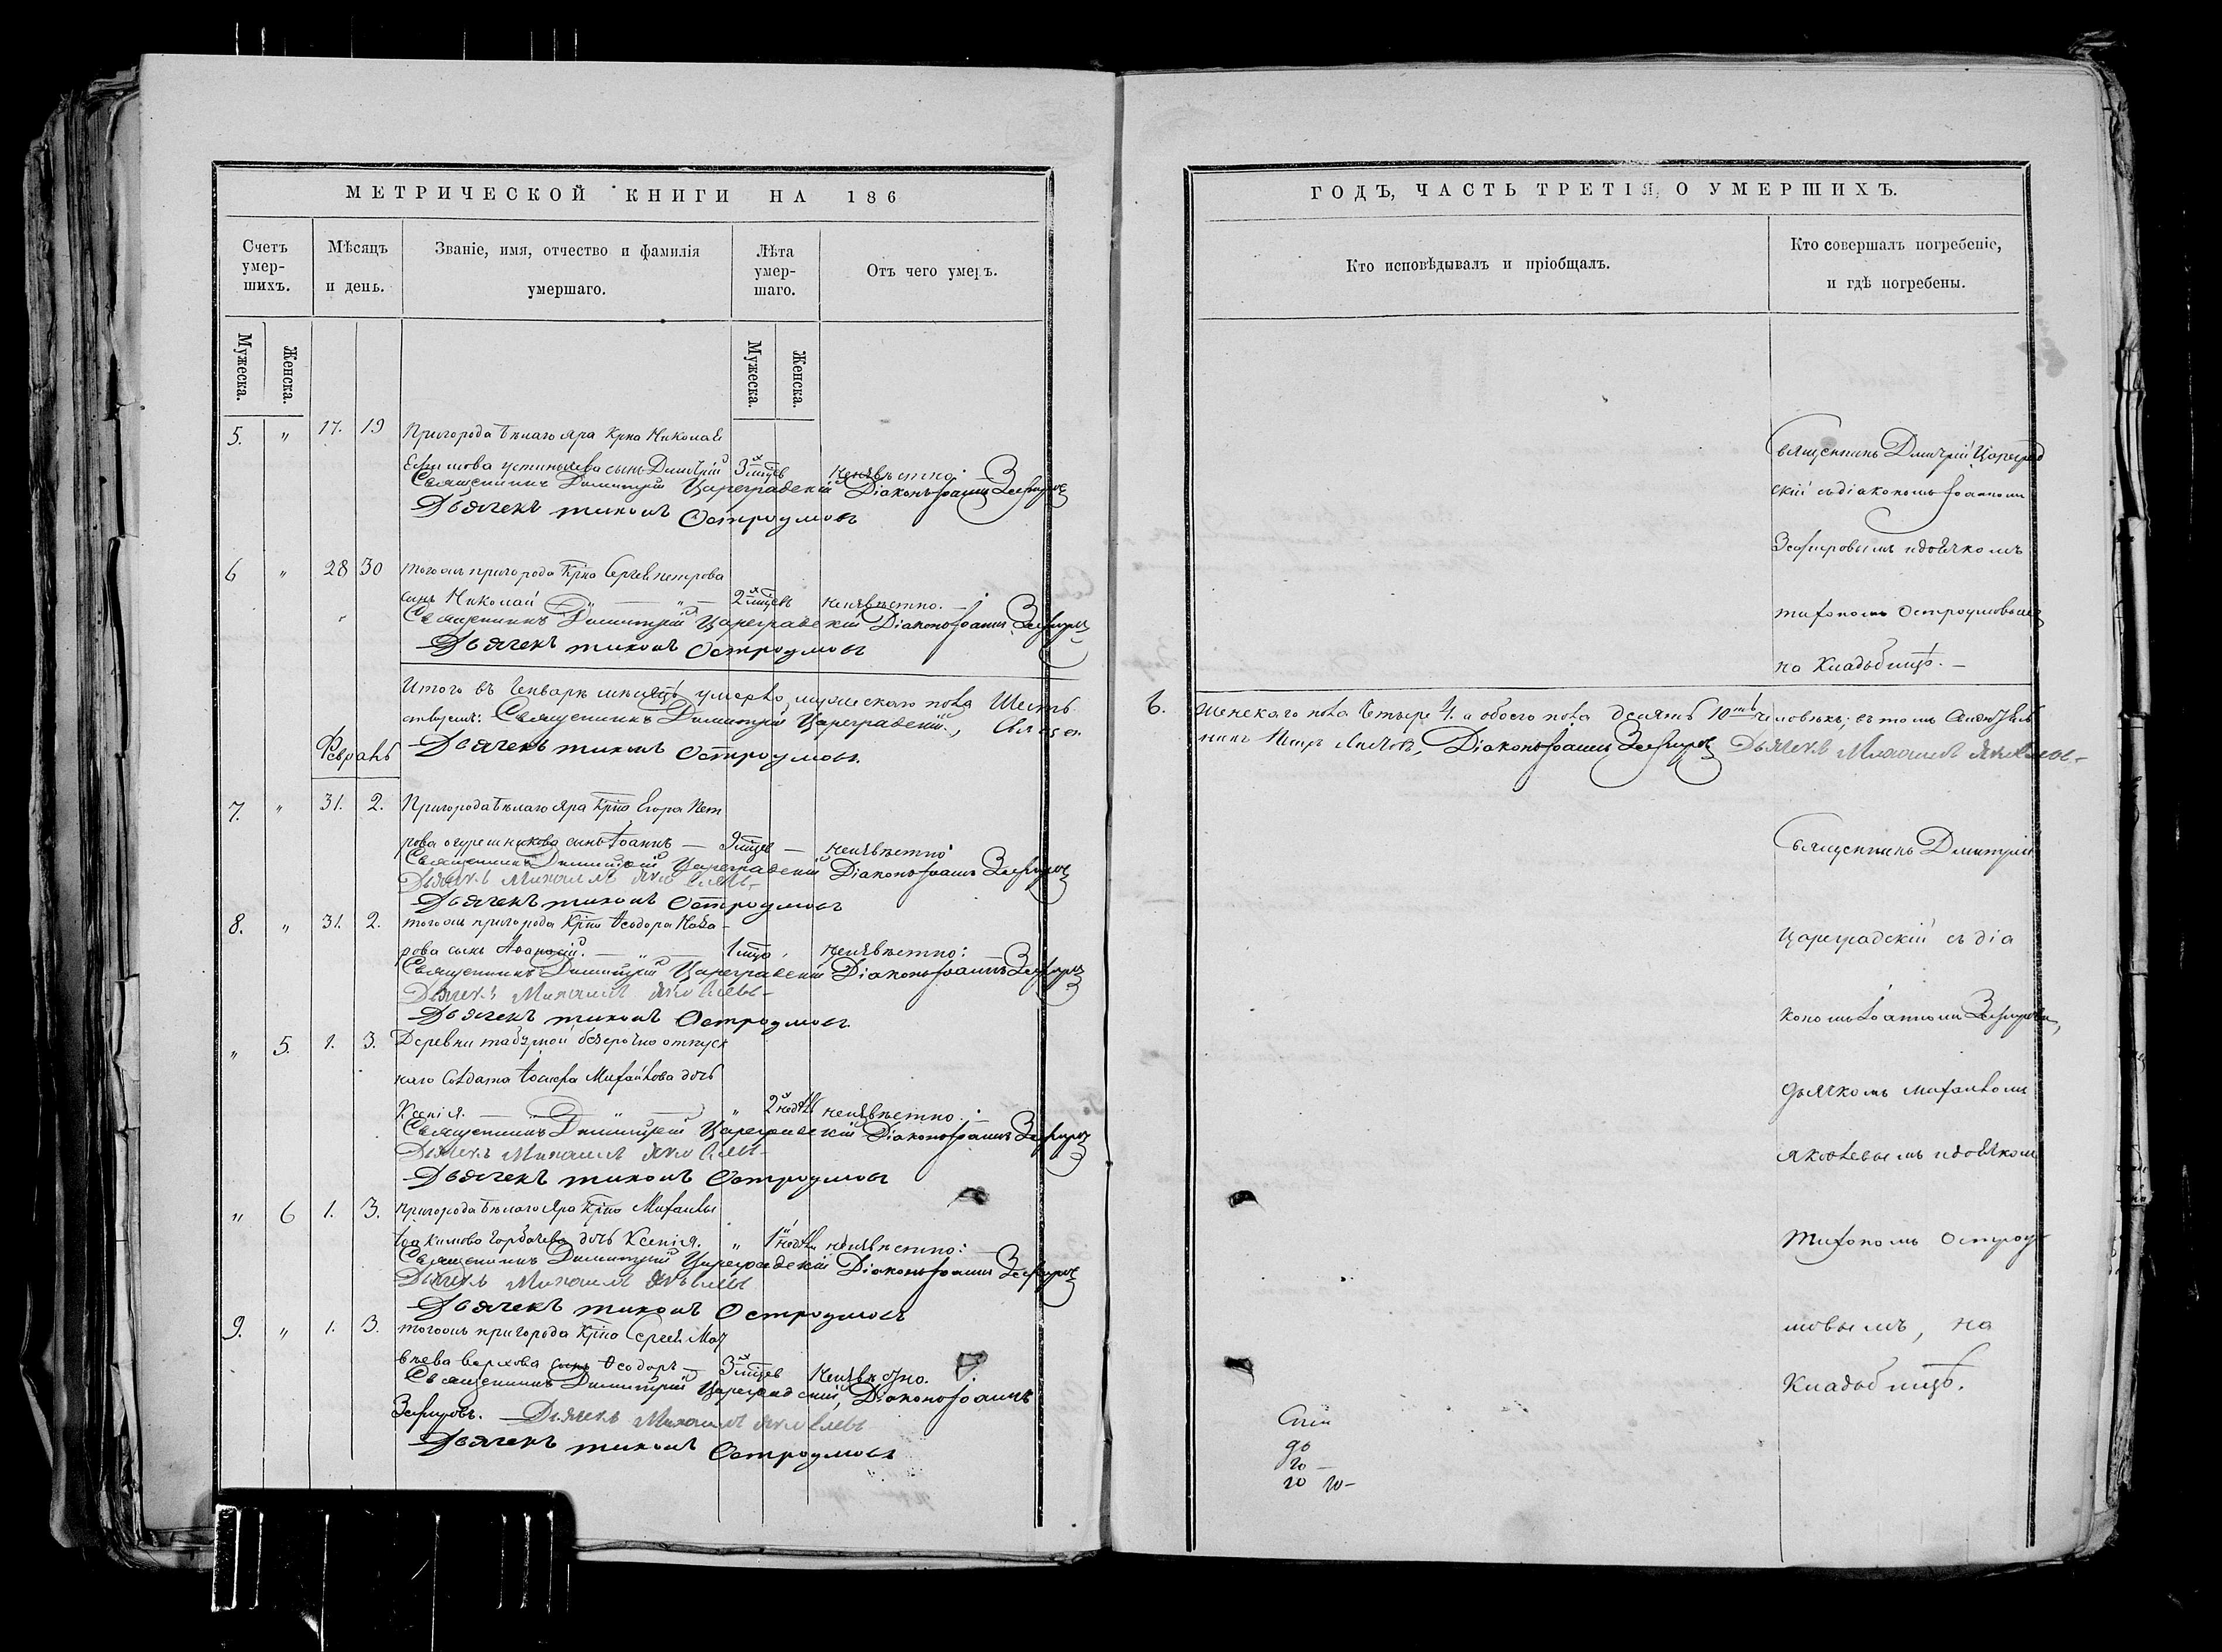 МЕТРИЧЕСКОЙ КНИГИ НА 186
Счетъ умер-шихъ.
Мѣсяцъ и день.
Званіе, имя, отчество и фамилія умершаго.
Лѣта умер-шаго.
Отъ чего умеръ.
Мужеска. Женска. Мужеска. Женска.
5. " 17. 19 Пригорода Бѣлаго Яра Крна Николая
Ефимова сынъ Димитрій 3 мцевъ неизвѣстно
Священникъ Димитрій Цареградскій Діаконъ Іоаннъ Зефировъ
Дьячекъ Тихонъ Остроумовъ
6 " 28 30 тогожъ пригорода Крна Сергея Петрова
сынъ Николай — " — 2 мцевъ неизвѣстно.
Священникъ Димитрій Цареградскій Діаконъ Іоаннъ Зефировъ
Дьячекъ Тихонъ Остроумовъ
Итого въ Генварѣ мѣсяцѣ умерло мужескаго пола Шесть
Священникъ Димитрій Цареградскій,
Дьячекъ Тихонъ Остроумовъ.
Февраль
7. " 31. 2. Пригорода Бѣлаго Яра Крна Егора Пет
рова Огурешникова сынъ Іоаннъ — мцев — неизвѣстно
Священникъ Димитрій Цареградскій Діаконъ Іоаннъ Зефировъ
Дьячекъ Михаилъ Яковлевъ
Дьячекъ Тихонъ Остроумовъ
8. " 31. 2. тогожъ пригорода Крна Ѳеодора
сынъ Аѳанасій. — " — 1 мца неизвѣстно:
Священникъ Димитрій Цареградскій Діаконъ Іоаннъ Зефировъ
Дьячекъ Михаилъ Яковлевъ
Дьячекъ Тихонъ Остроумовъ.
" 5. 1. 3. Деревни безсрочно отпуск
наго Солдата Іосифа Михайлова дочь
Ксенія. — " — " 2 недѣль неизвѣстно.
Священникъ Димитрій Цареградскій Діаконъ Іоаннъ Зефировъ
Дьячекъ Михаилъ Яковлевъ
Дьячекъ Тихонъ Остроумовъ
" 6 1. 3. пригорода Бѣлаго Яра Крна Михаила
Іоакимова Горбачева дочь Ксенія. " 1 недѣли неизвѣстно:
Священникъ Димитрій Цареградскій Діаконъ Іоаннъ Зефировъ
Дьячекъ Михаилъ Яковлевъ
Дьячекъ Тихонъ Остроумовъ
9. " 1. 3. тогожъ пригорода Крна Сергея Мат
вѣева сынъ Ѳеодоръ — 3 мцев Неизвѣстно.
Священникъ Димитрій Цареградскій, Діаконъ Іоаннъ
Зефировъ. Дьячекъ Михаилъ Яковлевъ
Дьячекъ Тихонъ Остроумовъ
ГОДЪ, ЧАСТЬ ТРЕТІЯ, О УМЕРШИХЪ.
Кто исповѣдывалъ и пріобщалъ.
Кто совершалъ погребеніе, и гдѣ погребены.
Священникъ Димитрій Цареград
скій съ діакономъ Іоанномъ
Зефировымъ и дьячкомъ
Тихономъ Остроумовымъ
на Кладбищѣ. —
6. Женскаго пола Четыре 4. а обоего пола десять 10ть человѣкъ; въ томъ
Діаконъ Іоаннъ Зефировъ Дьячекъ Михаилъ Яковлевъ
Священникъ Димитрій
Цареградскій съ діа
кономъ Іоанномъ Зефировымъ,
дьячкомъ Михаиломъ
Яковлевымъ и дьячкомъ
Тихономъ Остроу
мовымъ, на
Кладбищѣ.